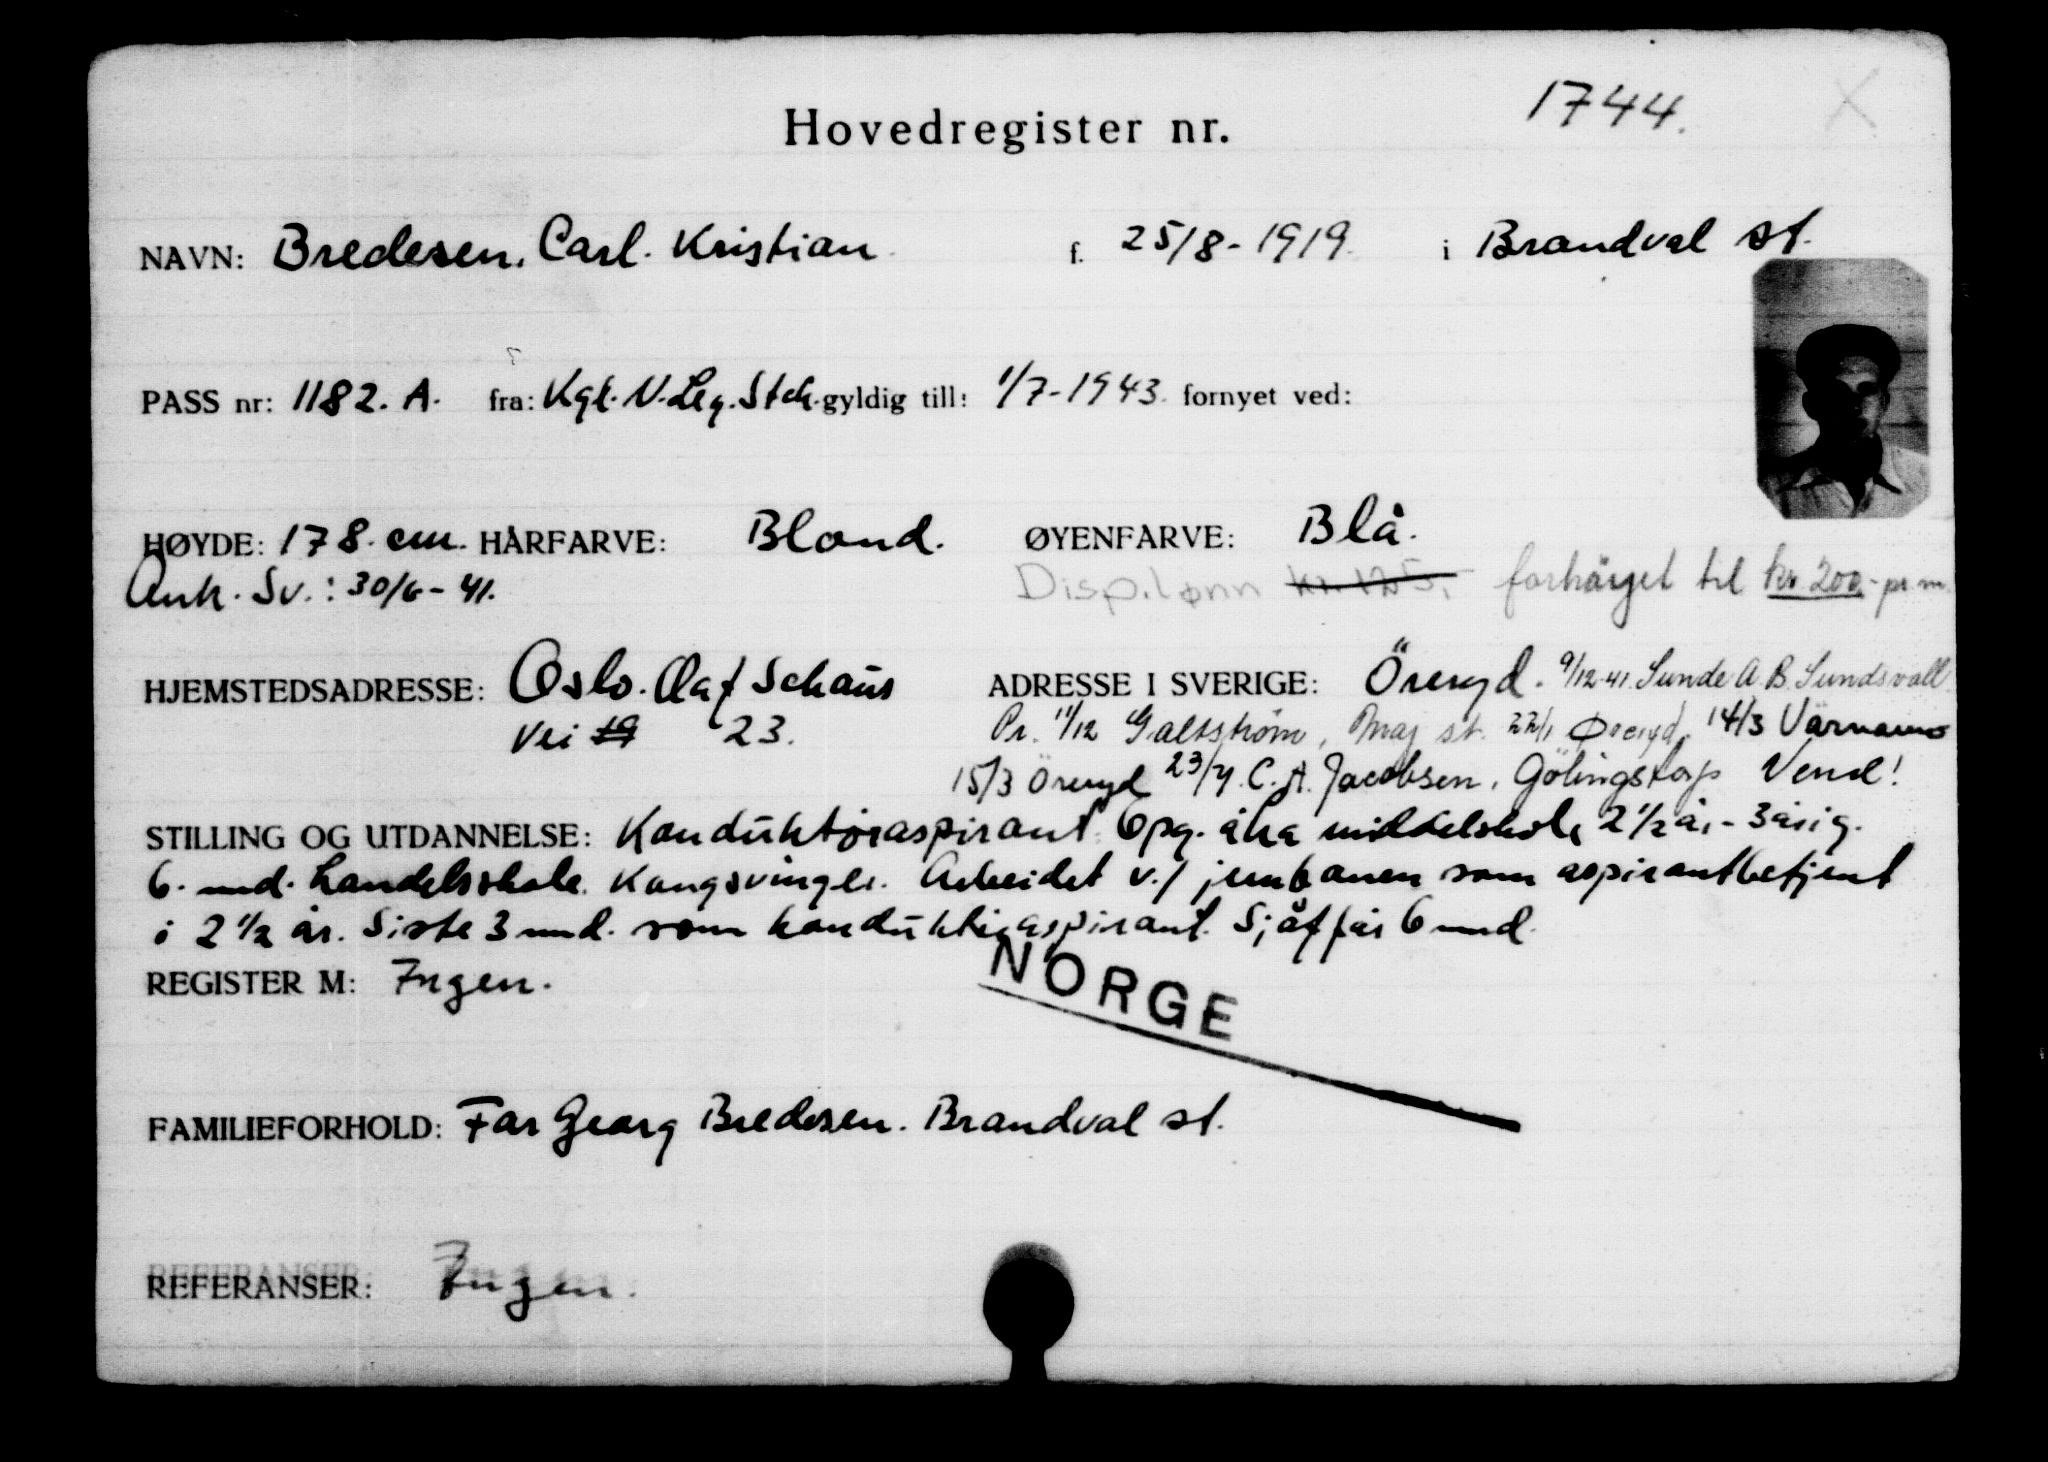 Hovedregister nr. 1744.
NAVN: Bredesen, Carl. Kristian f. 25/8-1919. i Brandval st.
PASS nr: 1182. A. fra: Kgl. N. Leg. Stch. gyldig till: 1/7-1943. fornyet ved:
HØYDE: 178. cm. HÅRFARVE: Blond. ØYENFARVE: Blå.
Ank. Sv.: 30/6-41. Disp.lønn kr. 125,- forhöyet til kr 200,- pr. m.
HJEMSTEDSADRESSE: Oslo. Olaf Schaus ADRESSE I SVERIGE: Öreryd. 9/12-41. Sunde A.B. Sundsvall
Vei 19 23. Pr. 11/12 Galtström, 22/1 Øreryd. 14/3 Värnamo
15/3 Öreryd 23/4. C. A. Jacobsen, Gölingstorp Vend!
STILLING OG UTDANNELSE: Konduktøraspirant. Opg. middelskole 2½ år - 3årig.
6. mnd. handelsskole. Kongsvinger. Arbeidet v./ jernbanen som aspirantbetjent
i 2½ år. Siste 3 mnd. som konduktøraspirant. Sjåffør 6 mnd.
REGISTER M: Ingen.
NORGE
FAMILIEFORHOLD: Far Georg Bredesen. Brandval st.
REFERANSER: Ingen.